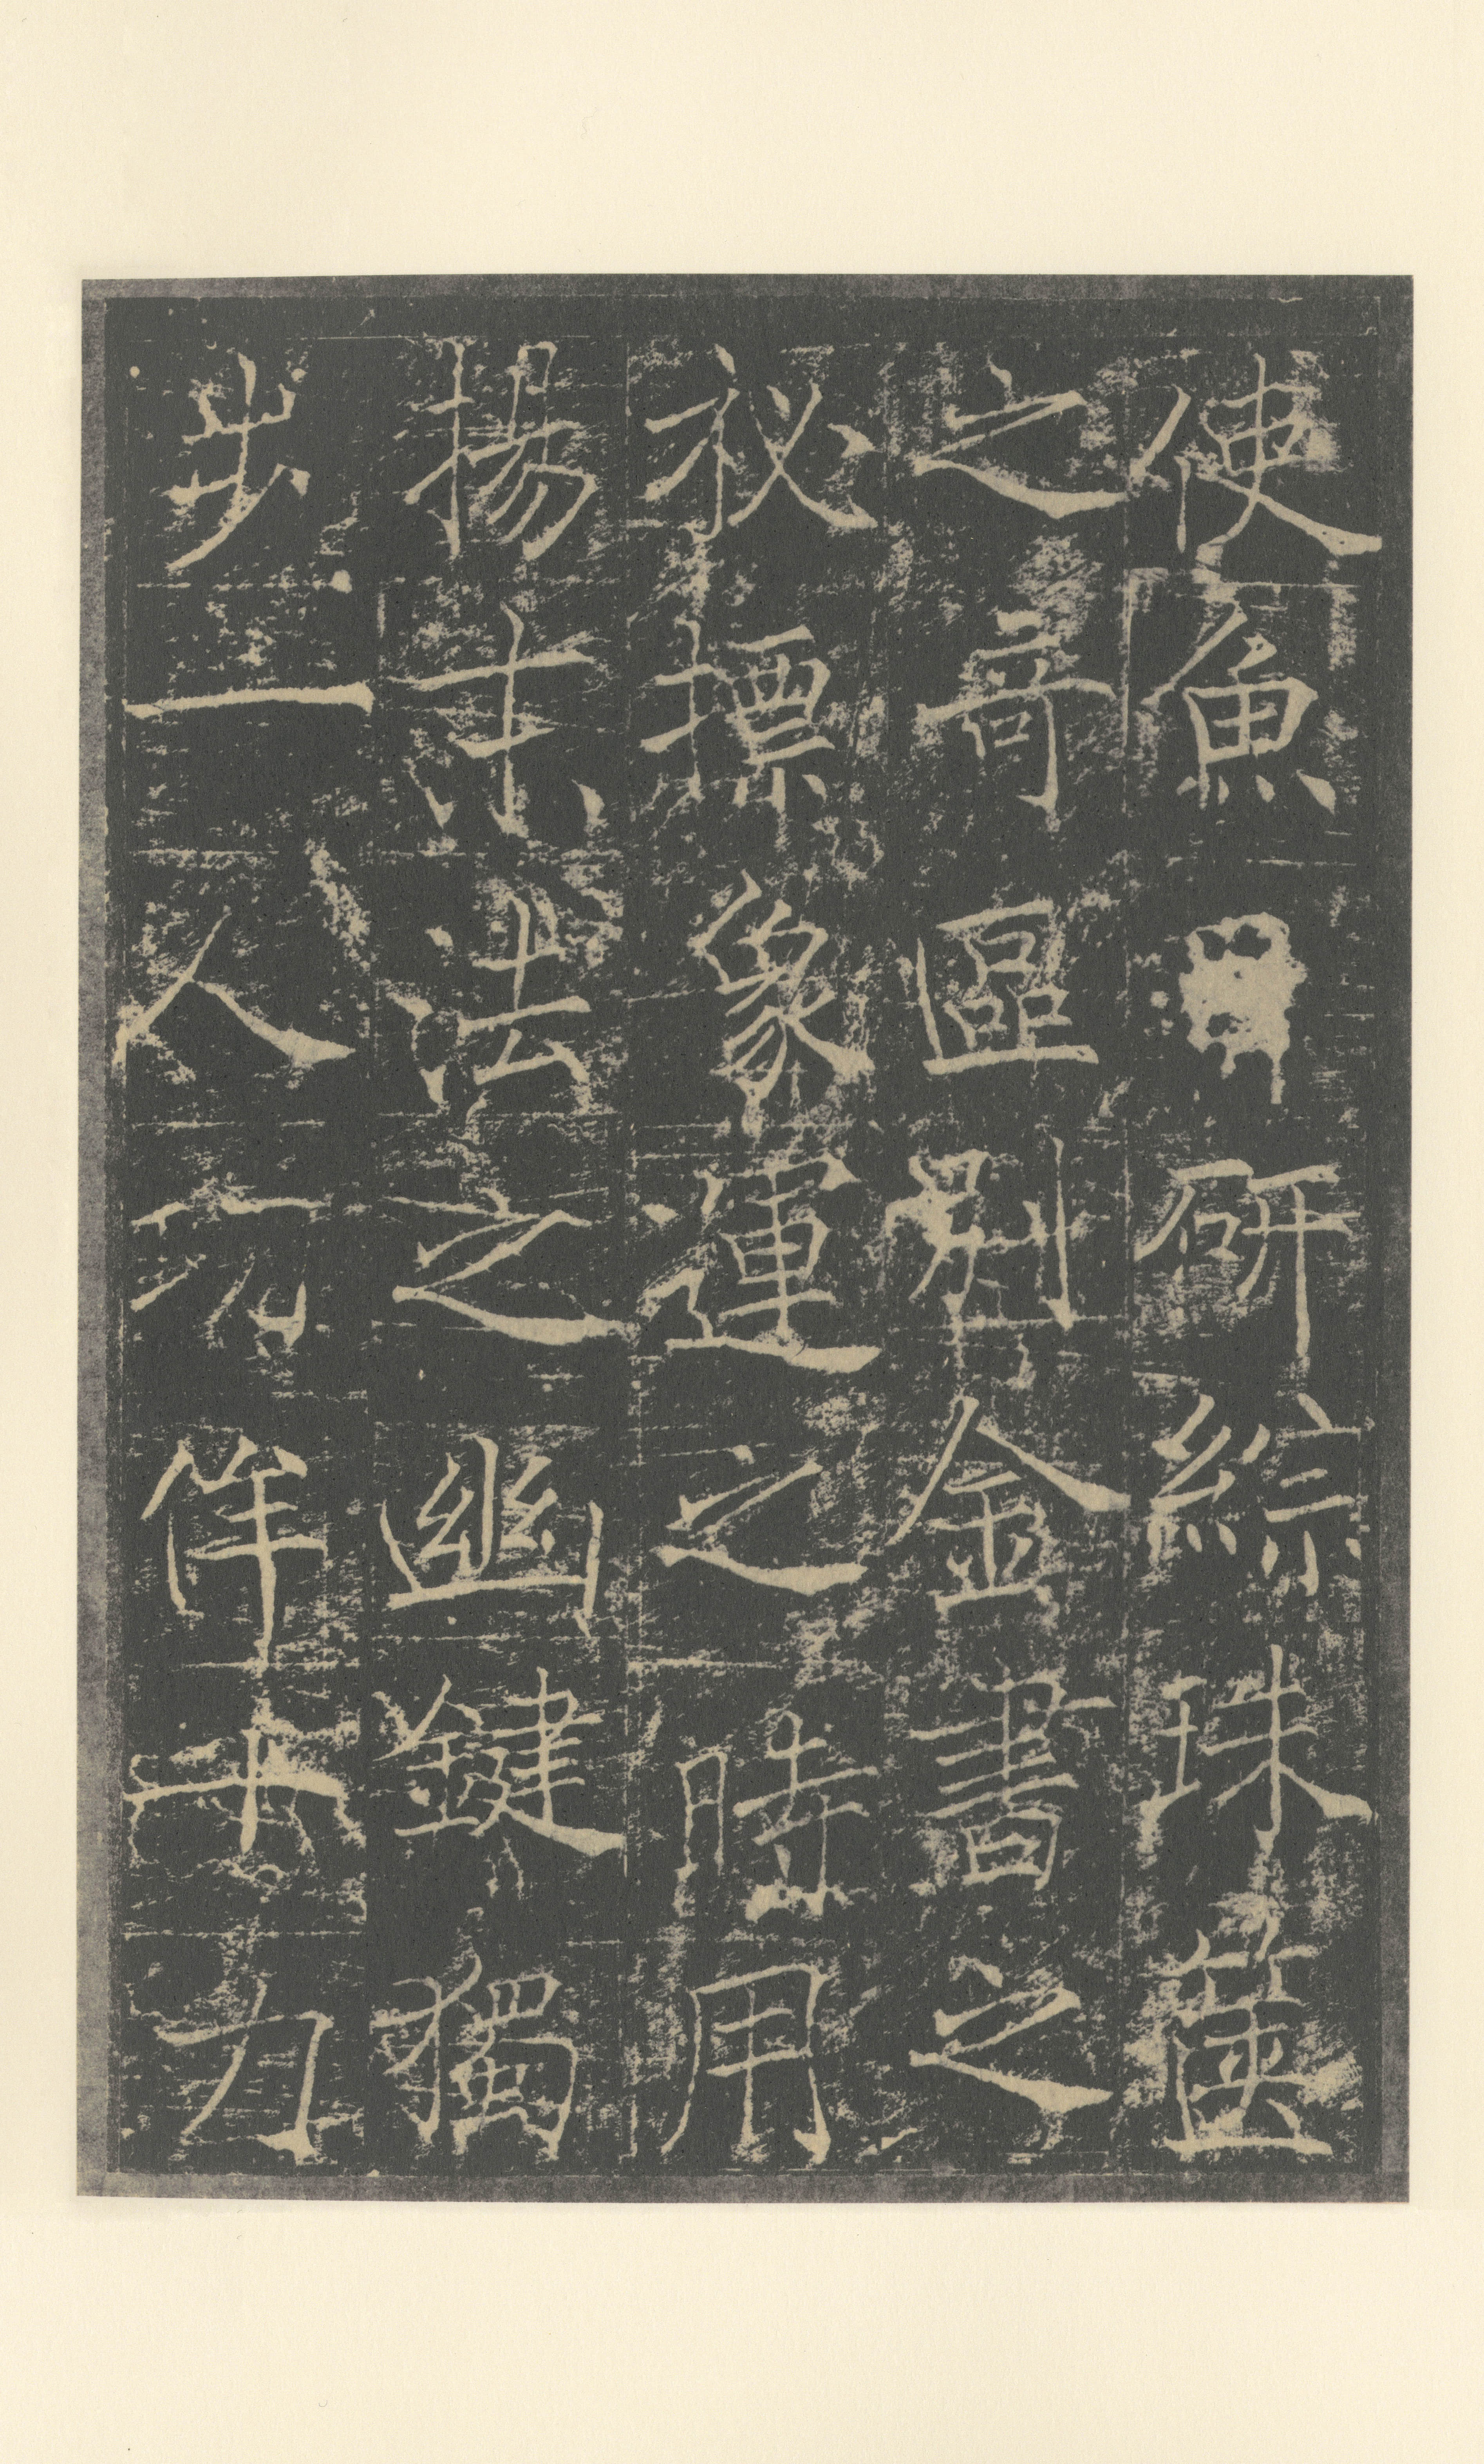 使魚研綜珠篋
之哥區別金書之
秘摽象運之時用
揚未法之幽鍵獨
步一人況侔十力